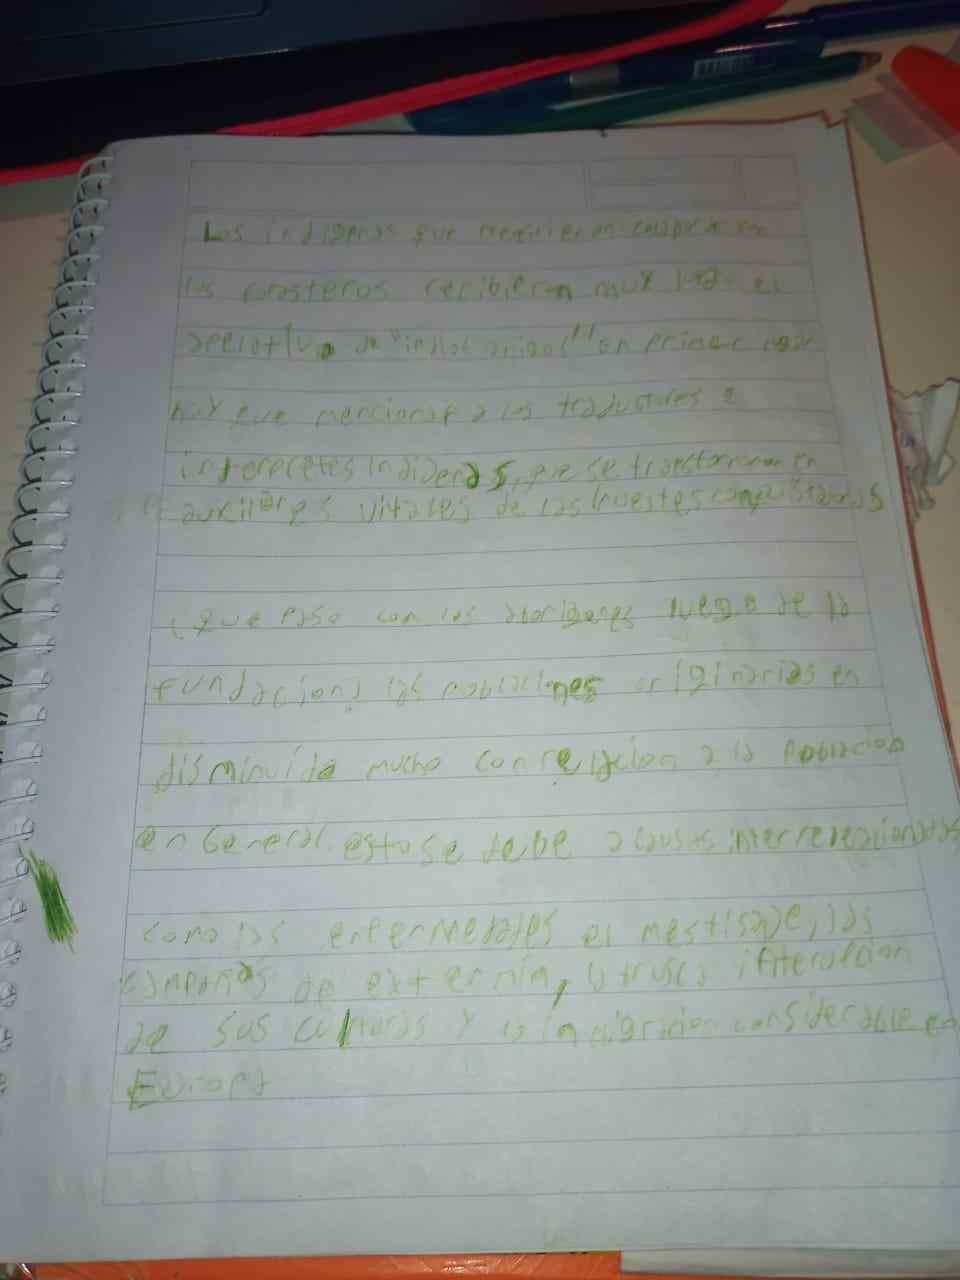 Los indigenas que
los forasteros recibieron muy el
de "indios amigos" en primer lugar
hay que mencionar a los traductores e
interpretes indigenas, que se transformaron en
auxiliares vitales de las huestes conquistadoras
¿que paso con los aborigenes luego de la
fundacion? las poblaciones originarias en
disminuida mucho con relacion a la poblacion
en General. esto se debe a causas
como las enfermedades el mestisaje, las
campañas de y
de sus culturas y la inmigracion considerable en
Europa